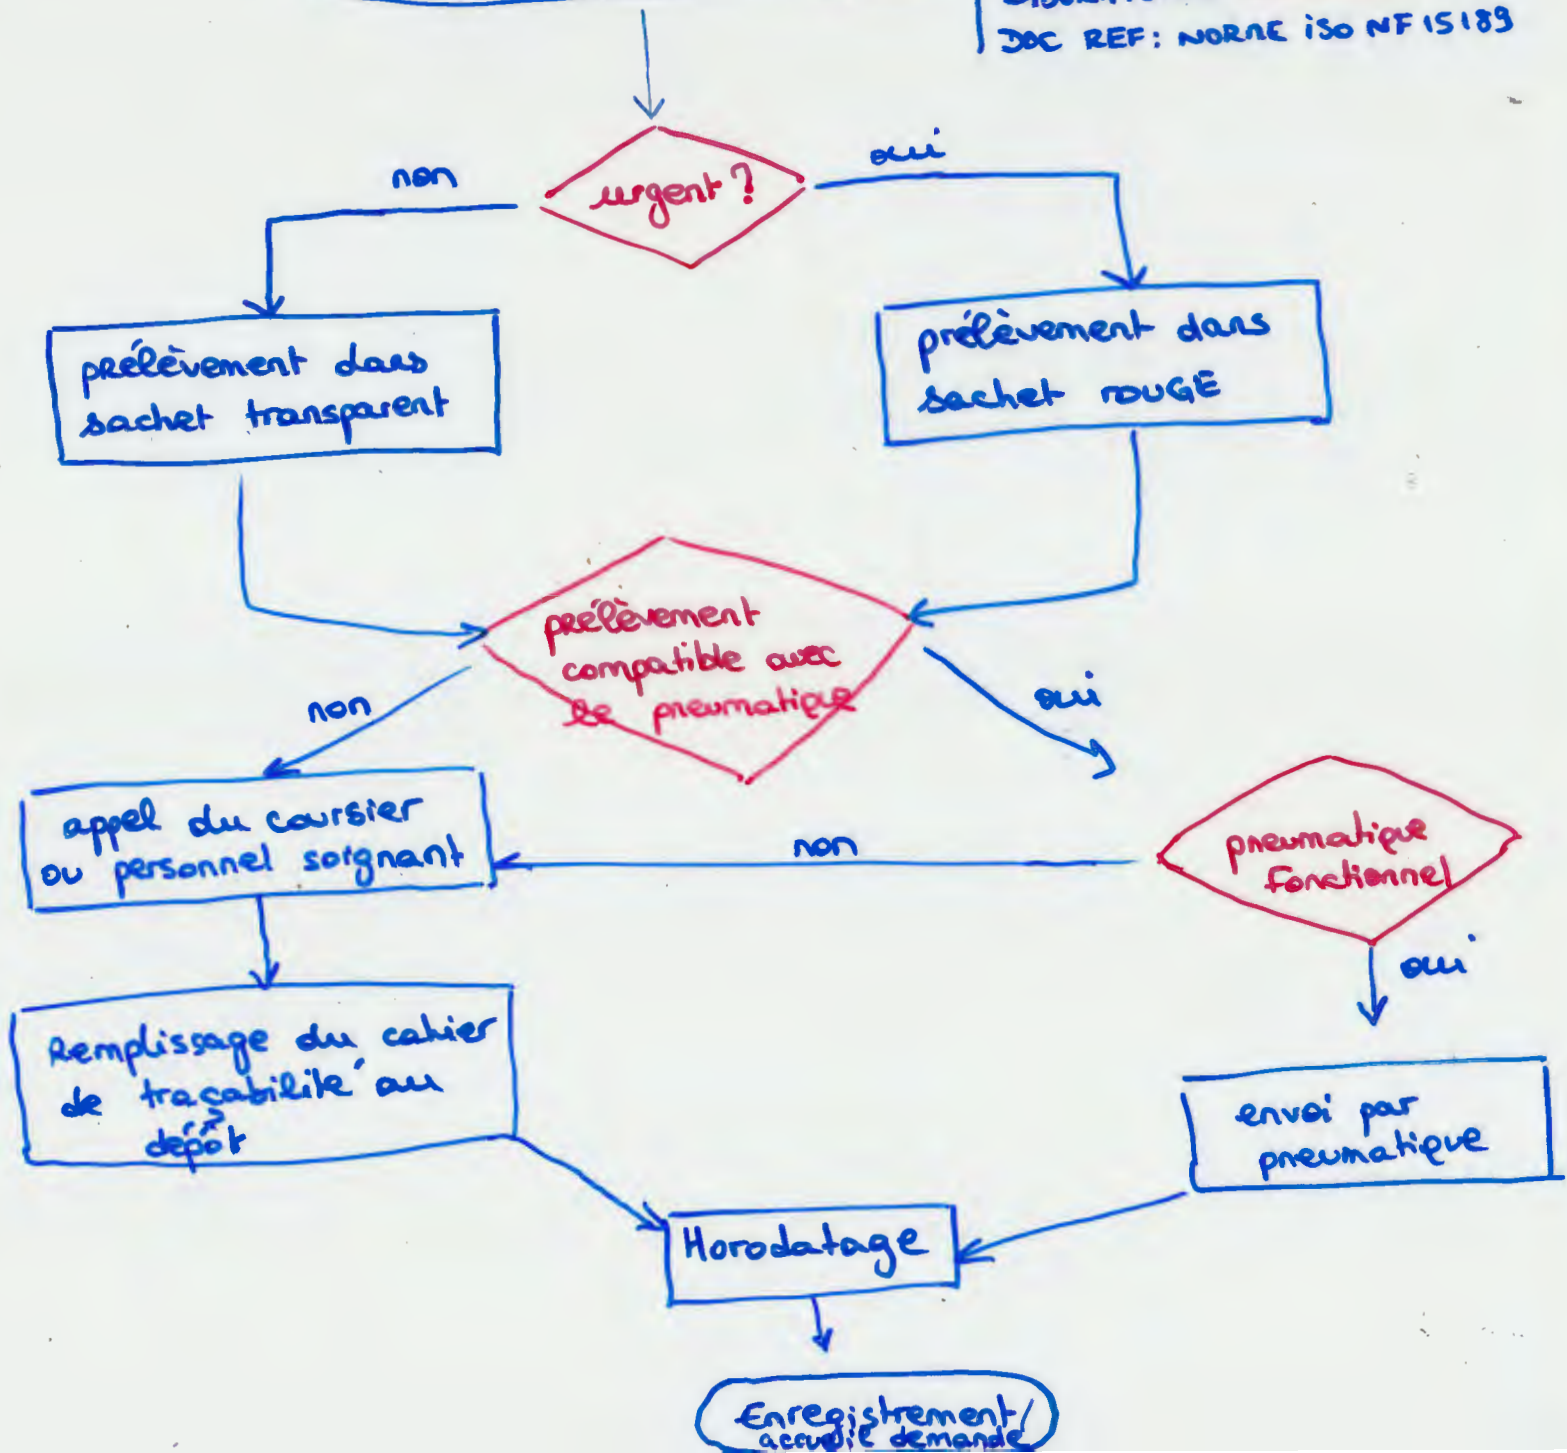 DOC REF: NORME ISO NF 15189
urgent?
non
oui
prélèvement dans
sachet transparent
prélèvement dans
sachet ROUGE
prélèvement
compatible avec
le pneumatique
non
oui
appel du coursier
ou personnel soignant
non
pneumatique
fonctionnel
oui
Remplissage du cahier
de traçabilité au
dépôt
envoi par
pneumatique
Horodatage
Enregistrement/
accueil demande